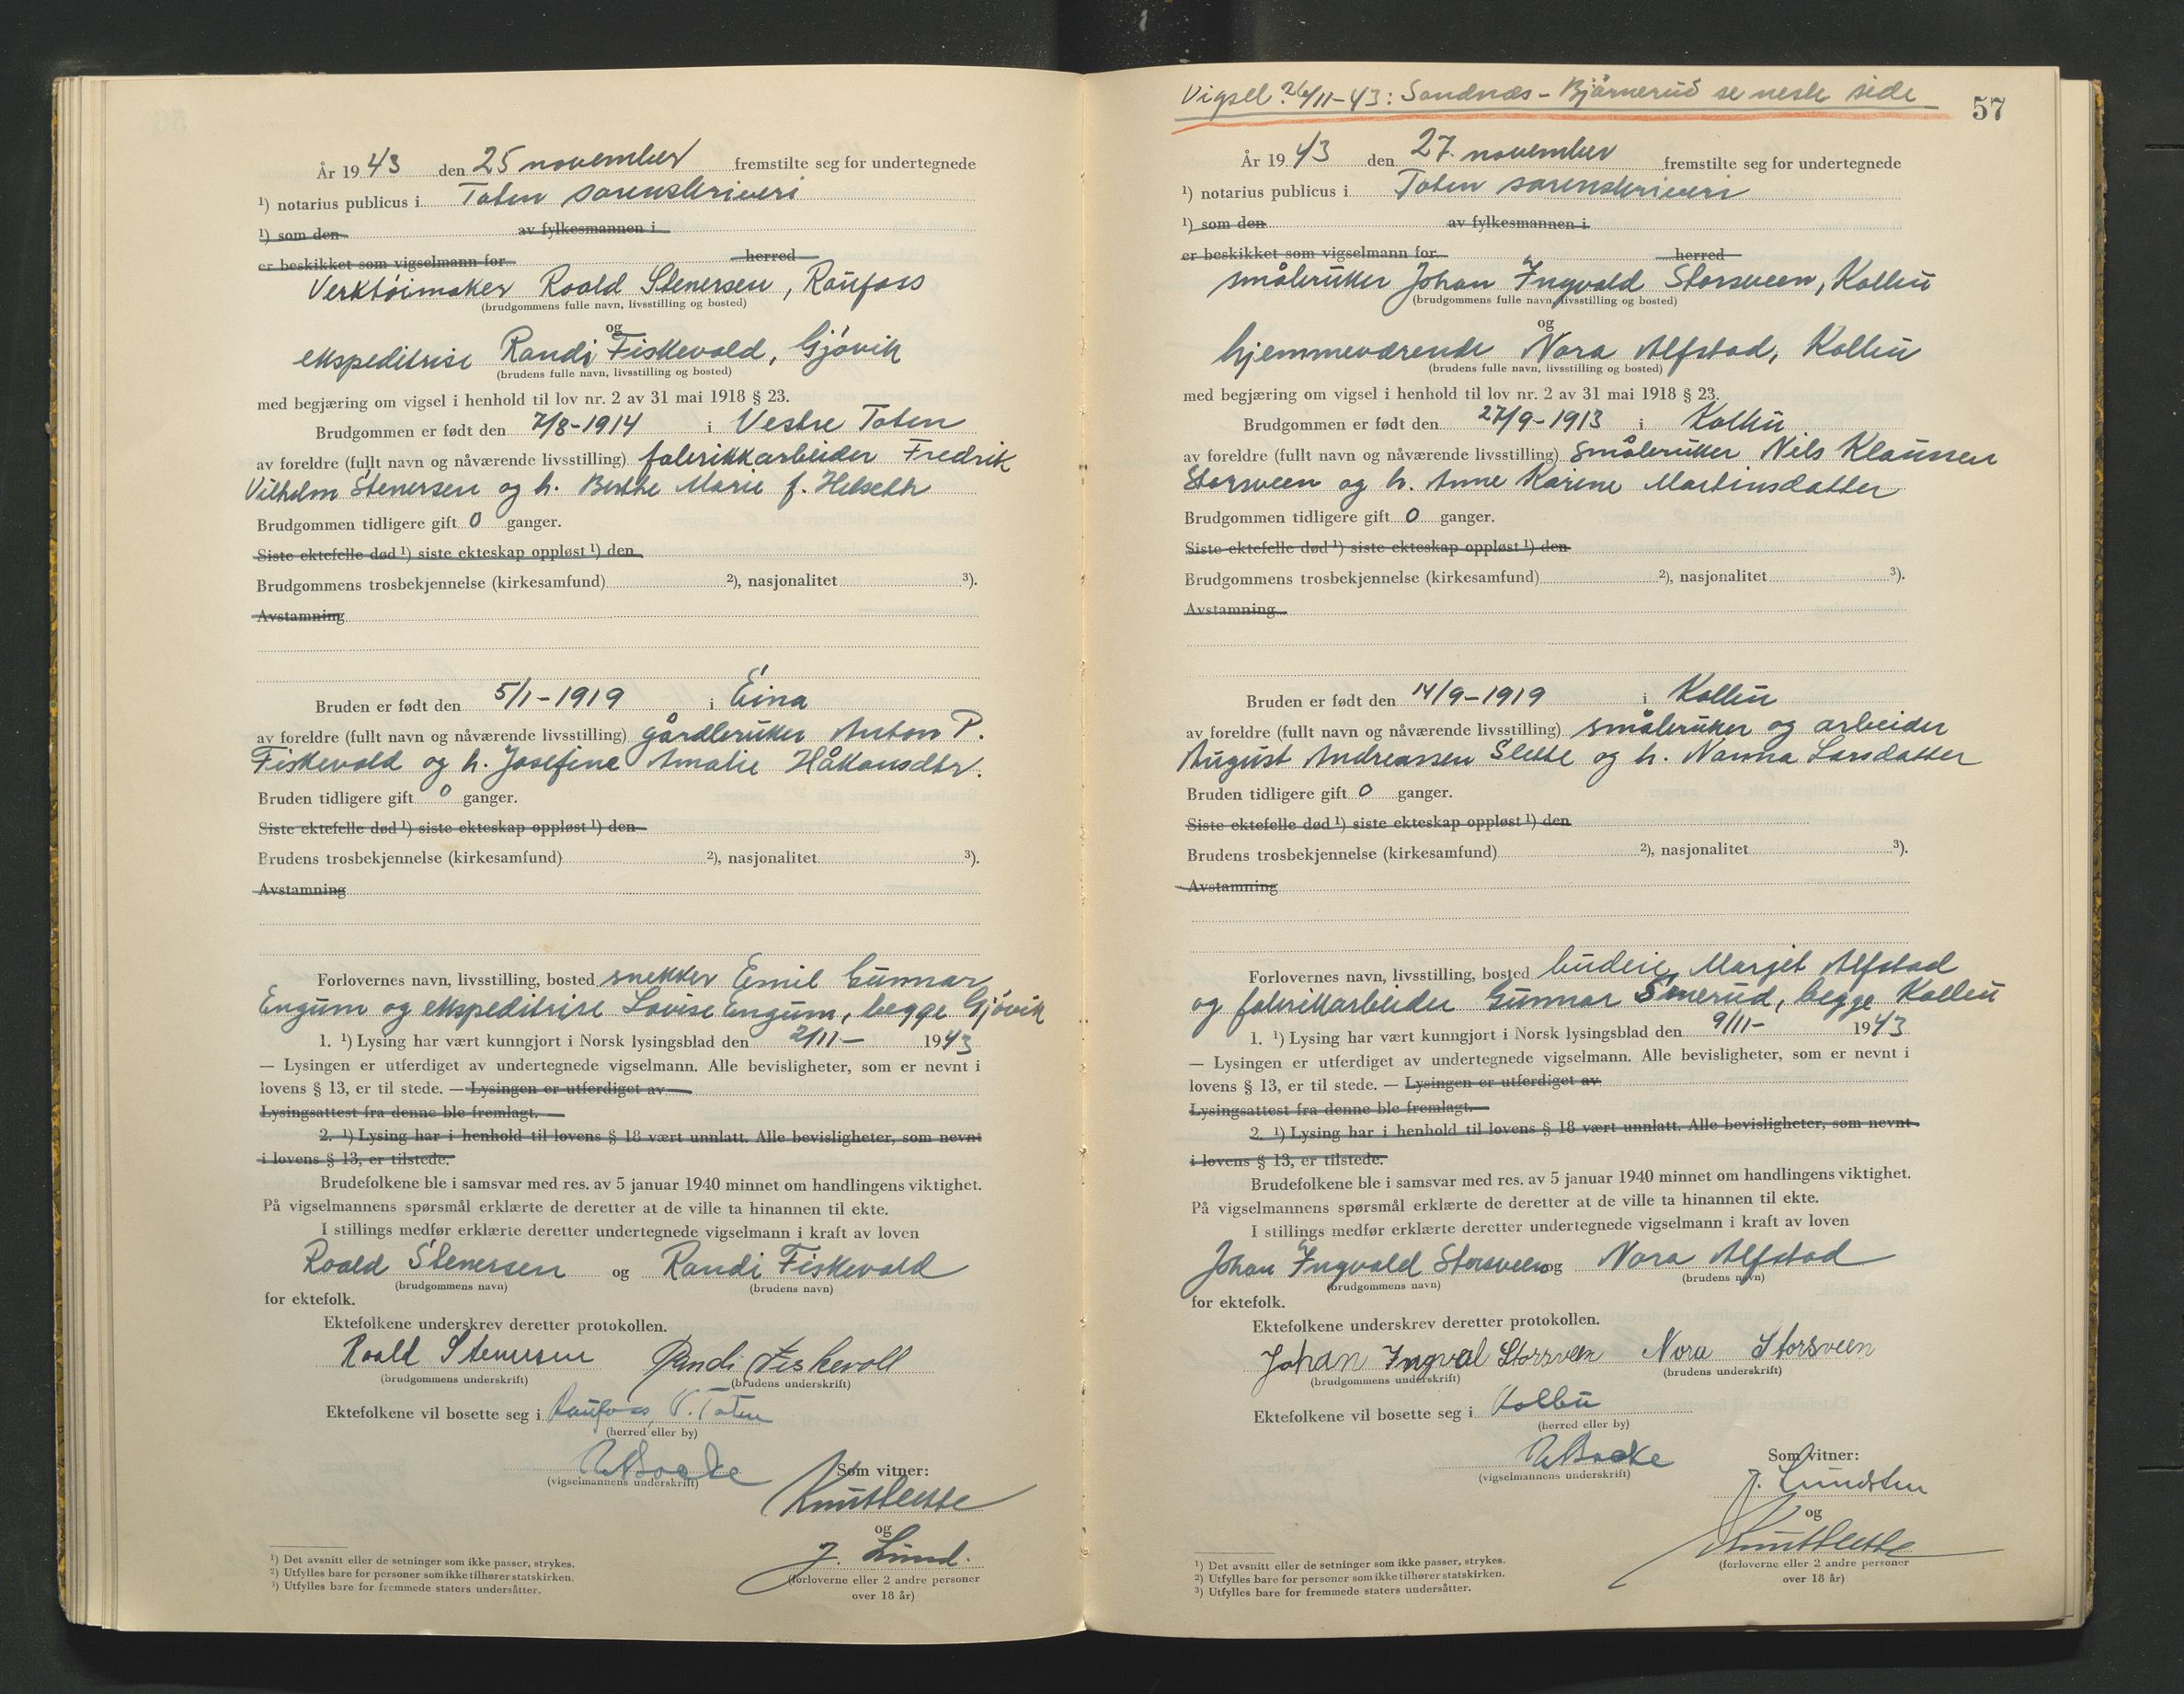 År 1943 den 25 november fremstilte seg for undertegnede
¹) notarius publicus i Toten sorenskriveri
¹) som den av fylkesmannen i
er beskikket som vigselmann for herred
Verktøimaker Roald Stenersen, Raufoss
(brudgommens fulle navn, livsstilling og bosted)
og
ekspeditrise Randi Fiskevold, Gjøvik
(brudens fulle navn, livsstilling og bosted)
med begjæring om vigsel i henhold til lov nr. 2 av 31 mai 1918 § 23.
Brudgommen er født den 7/8-1914 i Vestre Toten
av foreldre (fullt navn og nåværende livsstilling) fabrikkarbeider Fredrik
Vilhelm Stenersen og h. Berthe Marie f. Helseth
Brudgommen tidligere gift 0 ganger.
Siste ektefelle død ¹) siste ekteskap oppløst ¹) den
Brudgommens trosbekjennelse (kirkesamfund) ²), nasjonalitet ³).
Avstamning
Bruden er født den 5/1-1919 i Eina
av foreldre (fullt navn og nåværende livsstilling) gårdbruker Anton P.
Fiskevold og h. Josefine Amalie Håkonsdtr.
Bruden tidligere gift 0 ganger.
Siste ektefelle død ¹) siste ekteskap oppløst ¹) den
Brudens trosbekjennelse (kirkesamfund) ²), nasjonalitet ³).
Avstamning
Forlovernes navn, livsstilling, bosted snekker Emil Gunnar
Engum og ekspeditrise Lovise Engum, begge Gjøvik
1. ¹) Lysing har vært kunngjort i Norsk lysingsblad den 2/11- 1943
— Lysingen er utferdiget av undertegnede vigselmann. Alle bevisligheter, som er nevnt i
lovens § 13, er til stede. — Lysingen er utferdiget av
Lysingsattest fra denne ble fremlagt. —
2. ¹) Lysing har i henhold til lovens § 18 vært unnlatt. Alle bevisligheter, som nevnt
i lovens § 13, er tilstede.
Brudefolkene ble i samsvar med res. av 5 januar 1940 minnet om handlingens viktighet.
På vigselmannens spørsmål erklærte de deretter at de ville ta hinannen til ekte.
I stillings medfør erklærte deretter undertegnede vigselmann i kraft av loven
Roald Stenersen og Randi Fiskevold
(brudgommens navn) (brudens navn)
for ektefolk.
Ektefolkene underskrev deretter protokollen.
Roald Stenersen Randi Fiskevoll
(brudgommens underskrift) (brudens underskrift)
Ektefolkene vil bosette seg i Raufoss, V. Toten
(herred eller by)
Som vitner:
(vigselmannens underskrift)
og
J. Lund.
(forloverne eller 2 andre personer
over 18 år)
¹) Det avsnitt eller de setninger som ikke passer, strykes.
²) Utfylles bare for personer som ikke tilhører statskirken.
³) Utfylles bare for fremmede staters undersåtter.
Vigsel 26/11-43: Sandnæs - Bjørnerud se neste side
57
År 1943 den 27. november fremstilte seg for undertegnede
¹) notarius publicus i Toten sorenskriveri
¹) som den av fylkesmannen i
er beskikket som vigselmann for herred
småbruker Johan Ingvald Storsveen, Kolbu
(brudgommens fulle navn, livsstilling og bosted)
og
hjemmeværende Nora Alfstad, Kolbu
(brudens fulle navn, livsstilling og bosted)
med begjæring om vigsel i henhold til lov nr. 2 av 31 mai 1918 § 23.
Brudgommen er født den 27/9-1913 i Kolbu
av foreldre (fullt navn og nåværende livsstilling) småbruker Nils Klaussen
Storsveen og h. Anne Karine Martinsdatter
Brudgommen tidligere gift 0 ganger.
Siste ektefelle død ¹) siste ekteskap oppløst ¹) den
Brudgommens trosbekjennelse (kirkesamfund) ²), nasjonalitet ³).
Avstamning
Bruden er født den 14/9-1919 i Kolbu
av foreldre (fullt navn og nåværende livsstilling) småbruker og arbeider
August Andreassen Slette og h. Nanna Larsdatter
Bruden tidligere gift 0 ganger.
Siste ektefelle død ¹) siste ekteskap oppløst ¹) den
Brudens trosbekjennelse (kirkesamfund) ²), nasjonalitet ³).
Avstamning
Forlovernes navn, livsstilling, bosted budeie Margit Alfstad
og fabrikkarbeider Gunnar begge Kolbu
1. ¹) Lysing har vært kunngjort i Norsk lysingsblad den 9/11- 1943
— Lysingen er utferdiget av undertegnede vigselmann. Alle bevisligheter, som er nevnt i
lovens § 13, er til stede. — Lysingen er utferdiget av
Lysingsattest fra denne ble fremlagt. —
2. ¹) Lysing har i henhold til lovens § 18 vært unnlatt. Alle bevisligheter, som nevnt
i lovens § 13, er tilstede.
Brudefolkene ble i samsvar med res. av 5 januar 1940 minnet om handlingens viktighet.
På vigselmannens spørsmål erklærte de deretter at de ville ta hinannen til ekte.
I stillings medfør erklærte deretter undertegnede vigselmann i kraft av loven
Johan Ingvald Storsveen og Nora Alfstad
(brudgommens navn) (brudens navn)
for ektefolk.
Ektefolkene underskrev deretter protokollen.
Johan Ingval Storsveen Nora Storsveen
(brudgommens underskrift) (brudens underskrift)
Ektefolkene vil bosette seg i Kolbu
(herred eller by)
Som vitner:
(vigselmannens underskrift)
J. Lundsten
og
(forloverne eller 2 andre personer
over 18 år)
¹) Det avsnitt eller de setninger som ikke passer, strykes.
²) Utfylles bare for personer som ikke tilhører statskirken.
³) Utfylles bare for fremmede staters undersåtter.